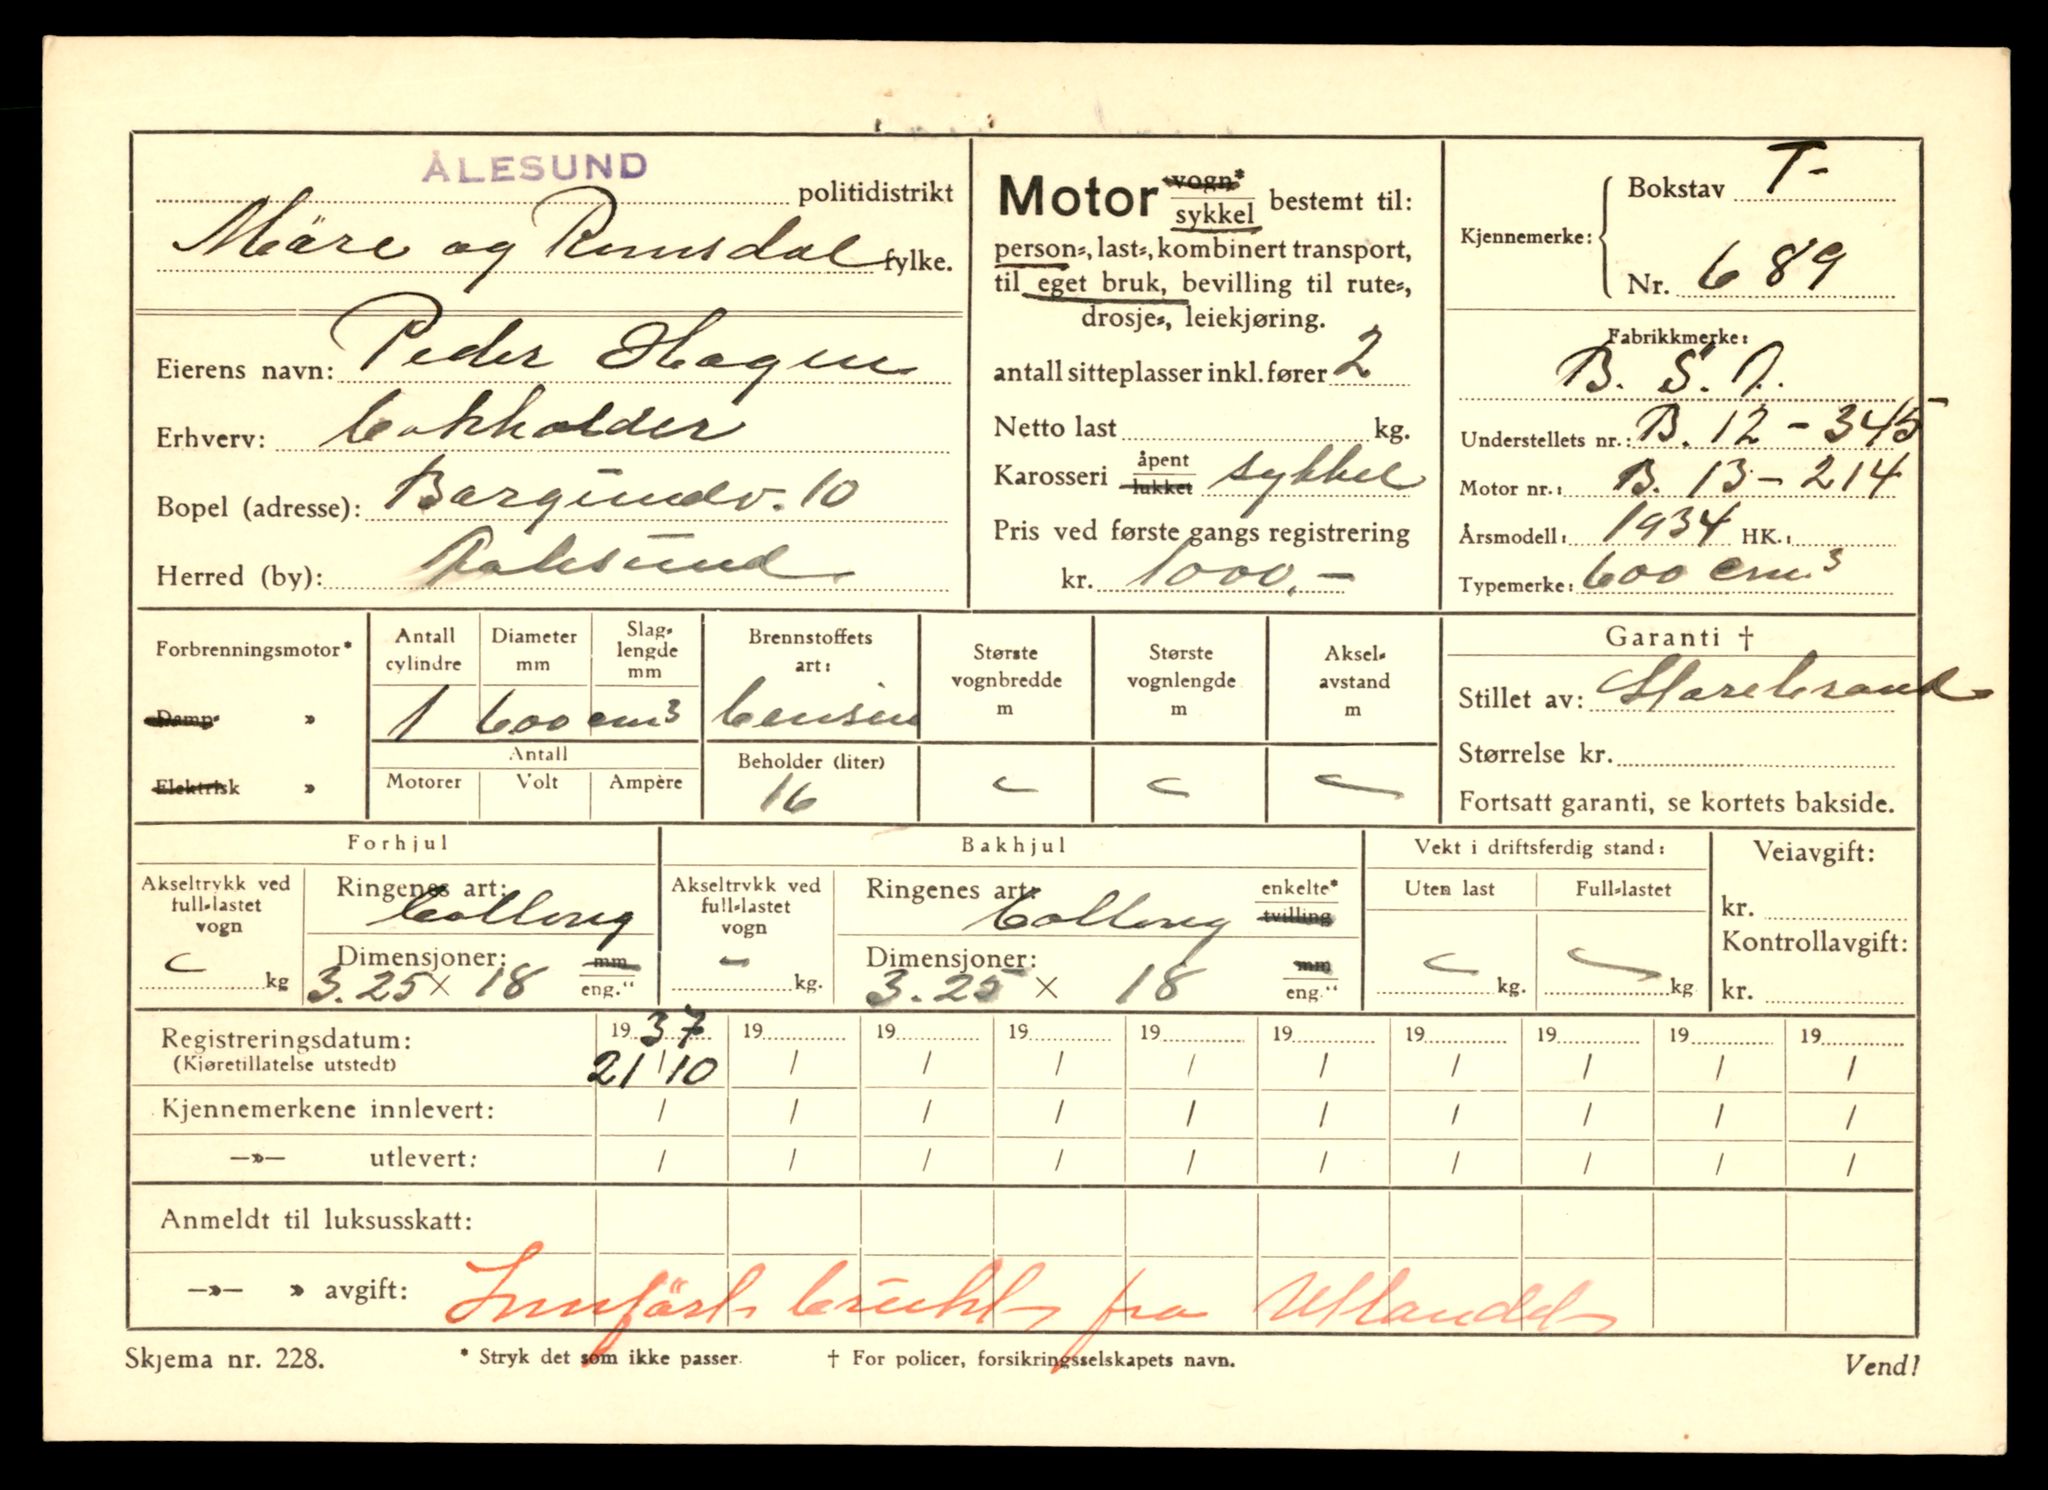 ÅLESUND
politidistrikt
Møre og Romsdal fylke.
Eierens navn: Peder Hagen
Erhverv: bokholder
Bopel (adresse): Borgundv. 10
Herred (by): Aalesund
Motor vogn* sykkel bestemt til:
person-, last-, kombinert transport,
til eget bruk, bevilling til rute-,
drosje-, leiekjøring.
antall sitteplasser inkl. fører 2
Netto last kg.
Karosseri åpent lukket sykkel
Pris ved første gangs registrering
kr. 1000,-
Kjennemerke:
Bokstav T-
Nr. 689
Fabrikkmerke:
B. S. A.
Understellets nr.: B. 12 - 345
Motor nr.: B. 13 - 214
Årsmodell: 1934 HK.:
Typemerke: 600 cm3
Forbrenningsmotor*
Damp- »
Elektrisk »
Antall cylindre
Diameter mm
Slag-lengde mm
1 600 cm3
Antall
Motorer Volt Ampère
Brennstoffets art:
bensin
Beholder (liter)
16
Største vognbredde m
Største vognlengde m
Aksel-avstand m
Garanti †
Stillet av: Storebrand
Størrelse kr.
Fortsatt garanti, se kortets bakside.
Forhjul
Akseltrykk ved full-lastet vogn
- kg
Ringenes art: ballong
Dimensjoner: mm
3.25 x 18 eng."
Bakhjul
Akseltrykk ved full-lastet vogn
- kg.
Ringenes art: ballong enkelte* tvilling
Dimensjoner: mm
3.25 x 18 eng."
Vekt i driftsferdig stand:
Uten last Full-lastet
- kg. - kg
Veiavgift:
kr.
Kontrollavgift:
kr.
Registreringsdatum: 1937 19 19 19 19 19 19 19 19 19
(Kjøretillatelse utstedt) 21/10 / / / / / / / / /
Kjennemerkene innlevert: / / / / / / / / / /
—»— utlevert: / / / / / / / / / /
Anmeldt til luksusskatt:
—»— » avgift: Innført brukt fra Utlandet
Skjema nr. 228.
* Stryk det som ikke passer.
† For policer, forsikringsselskapets navn.
Vend!